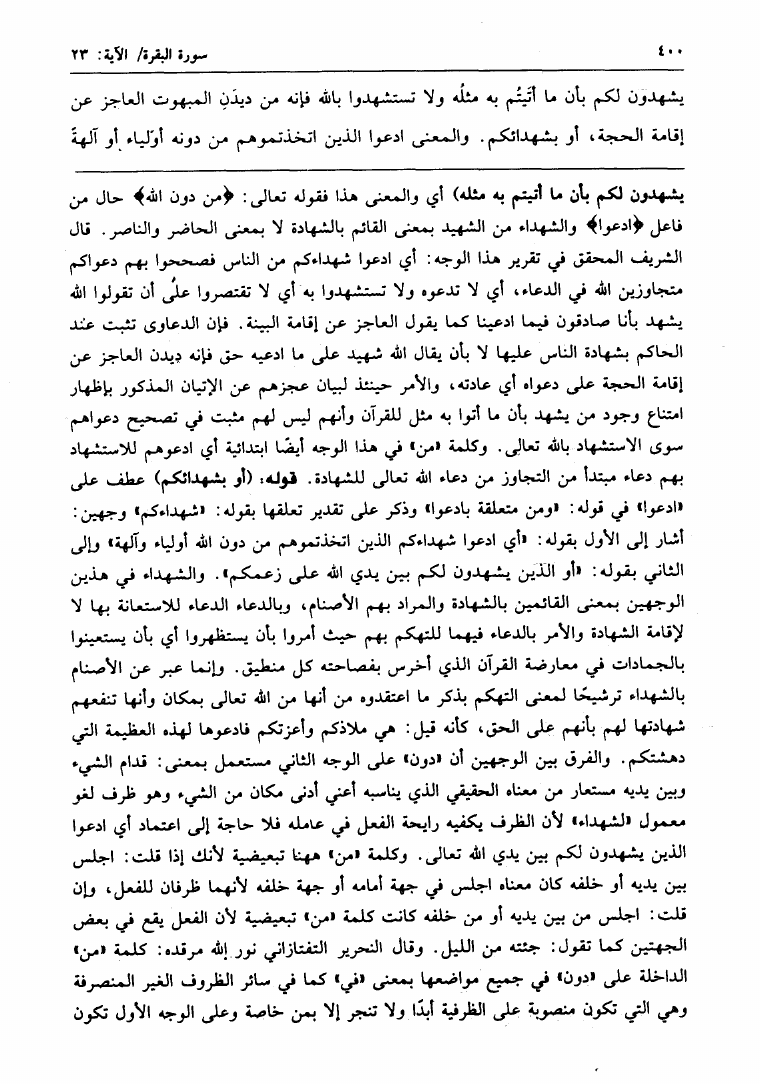 ٤٠٠
سورة البقرة/ الآية: ٢٣
يشهدون لكم بأن ما أتيتُم به مثلُه ولا تستشهدوا بالله فإنه من ديدَنِ المبهوت العاجز عن
إقامة الحجة، أو بشهدائكم. والمعنى ادعوا الذين اتخذتموهم من دونه أولياء أو آلهةً
يشهدون لكم بأن ما أتيتم به مثله) أي والمعنى هذا فقوله تعالى: ﴿من دون الله﴾ حال من
فاعل ﴿ادعوا﴾ والشهداء من الشهيد بمعنى القائم بالشهادة لا بمعنى الحاضر والناصر. قال
الشريف المحقق في تقرير هذا الوجه: أي ادعوا شهداءكم من الناس فصححوا بهم دعواكم
متجاوزين الله في الدعاء، أي لا تدعوه ولا تستشهدوا به أي لا تقتصروا على أن تقولوا الله
يشهد بأنا صادقون فيما ادعينا كما يقول العاجز عن إقامة البينة. فإن الدعاوى تثبت عند
الحاكم بشهادة الناس عليها لا بأن يقال الله شهيد على ما ادعيه حق فإنه ديدن العاجز عن
إقامة الحجة على دعواه أي عادته، والأمر حينئذ لبيان عجزهم عن الإتيان المذكور بإظهار
امتناع وجود من يشهد بأن ما أتوا به مثل للقرآن وأنهم ليس لهم مثبت في تصحيح دعواهم
سوى الاستشهاد بالله تعالى. وكلمة «من» في هذا الوجه أيضًا ابتدائية أي ادعوهم للاستشهاد
بهم دعاء مبتدأ من التجاوز من دعاء الله تعالى للشهادة. قوله: (أو بشهدائكم) عطف على
«ادعوا» في قوله: «ومن متعلقة بادعوا» وذكر على تقدير تعلقها بقوله: «شهداءكم» وجهين:
أشار إلى الأول بقوله: «أي ادعوا شهداءكم الذين اتخذتموهم من دون الله أولياء وآلهة» وإلى
الثاني بقوله: «أو الذين يشهدون لكم بين يدي الله على زعمكم». والشهداء في هذين
الوجهين بمعنى القائمين بالشهادة والمراد بهم الأصنام، وبالدعاء الدعاء للاستعانة بها لا
لإقامة الشهادة والأمر بالدعاء فيهما للتهكم بهم حيث أمروا بأن يستظهروا أي بأن يستعينوا
بالجمادات في معارضة القرآن الذي أخرس بفصاحته كل منطيق. وإنما عبر عن الأصنام
بالشهداء ترشيحًا لمعنى التهكم بذكر ما اعتقدوه من أنها من الله تعالى بمكان وأنها تنفعهم
شهادتها لهم بأنهم على الحق، كأنه قيل: هي ملاذكم وأعزتكم فادعوها لهذه العظيمة التي
دهشتكم. والفرق بين الوجهين أن «دون» على الوجه الثاني مستعمل بمعنى: قدام الشيء
وبين يديه مستعار من معناه الحقيقي الذي يناسبه أعني أدنى مكان من الشيء وهو ظرف لغو
معمول «لشهداء» لأن الظرف يكفيه رايحة الفعل في عامله فلا حاجة إلى اعتماد أي ادعوا
الذين يشهدون لكم بين يدي الله تعالى. وكلمة «من» ههنا تبعيضية لأنك إذا قلت: اجلس
بين يديه أو خلفه كان معناه اجلس في جهة أمامه أو جهة خلفه لأنهما ظرفان للفعل، وإن
قلت: اجلس من بين يديه أو من خلفه كانت كلمة «من» تبعيضية لأن الفعل يقع في بعض
الجهتين كما تقول: جئته من الليل. وقال النحرير التفتازاني نور الله مرقده: كلمة «من»
الداخلة على «دون» في جميع مواضعها بمعنى «في» كما في سائر الظروف الغير المنصرفة
وهي التي تكون منصوبة على الظرفية أبدًا ولا تنجر إلا بمن خاصة وعلى الوجه الأول تكون